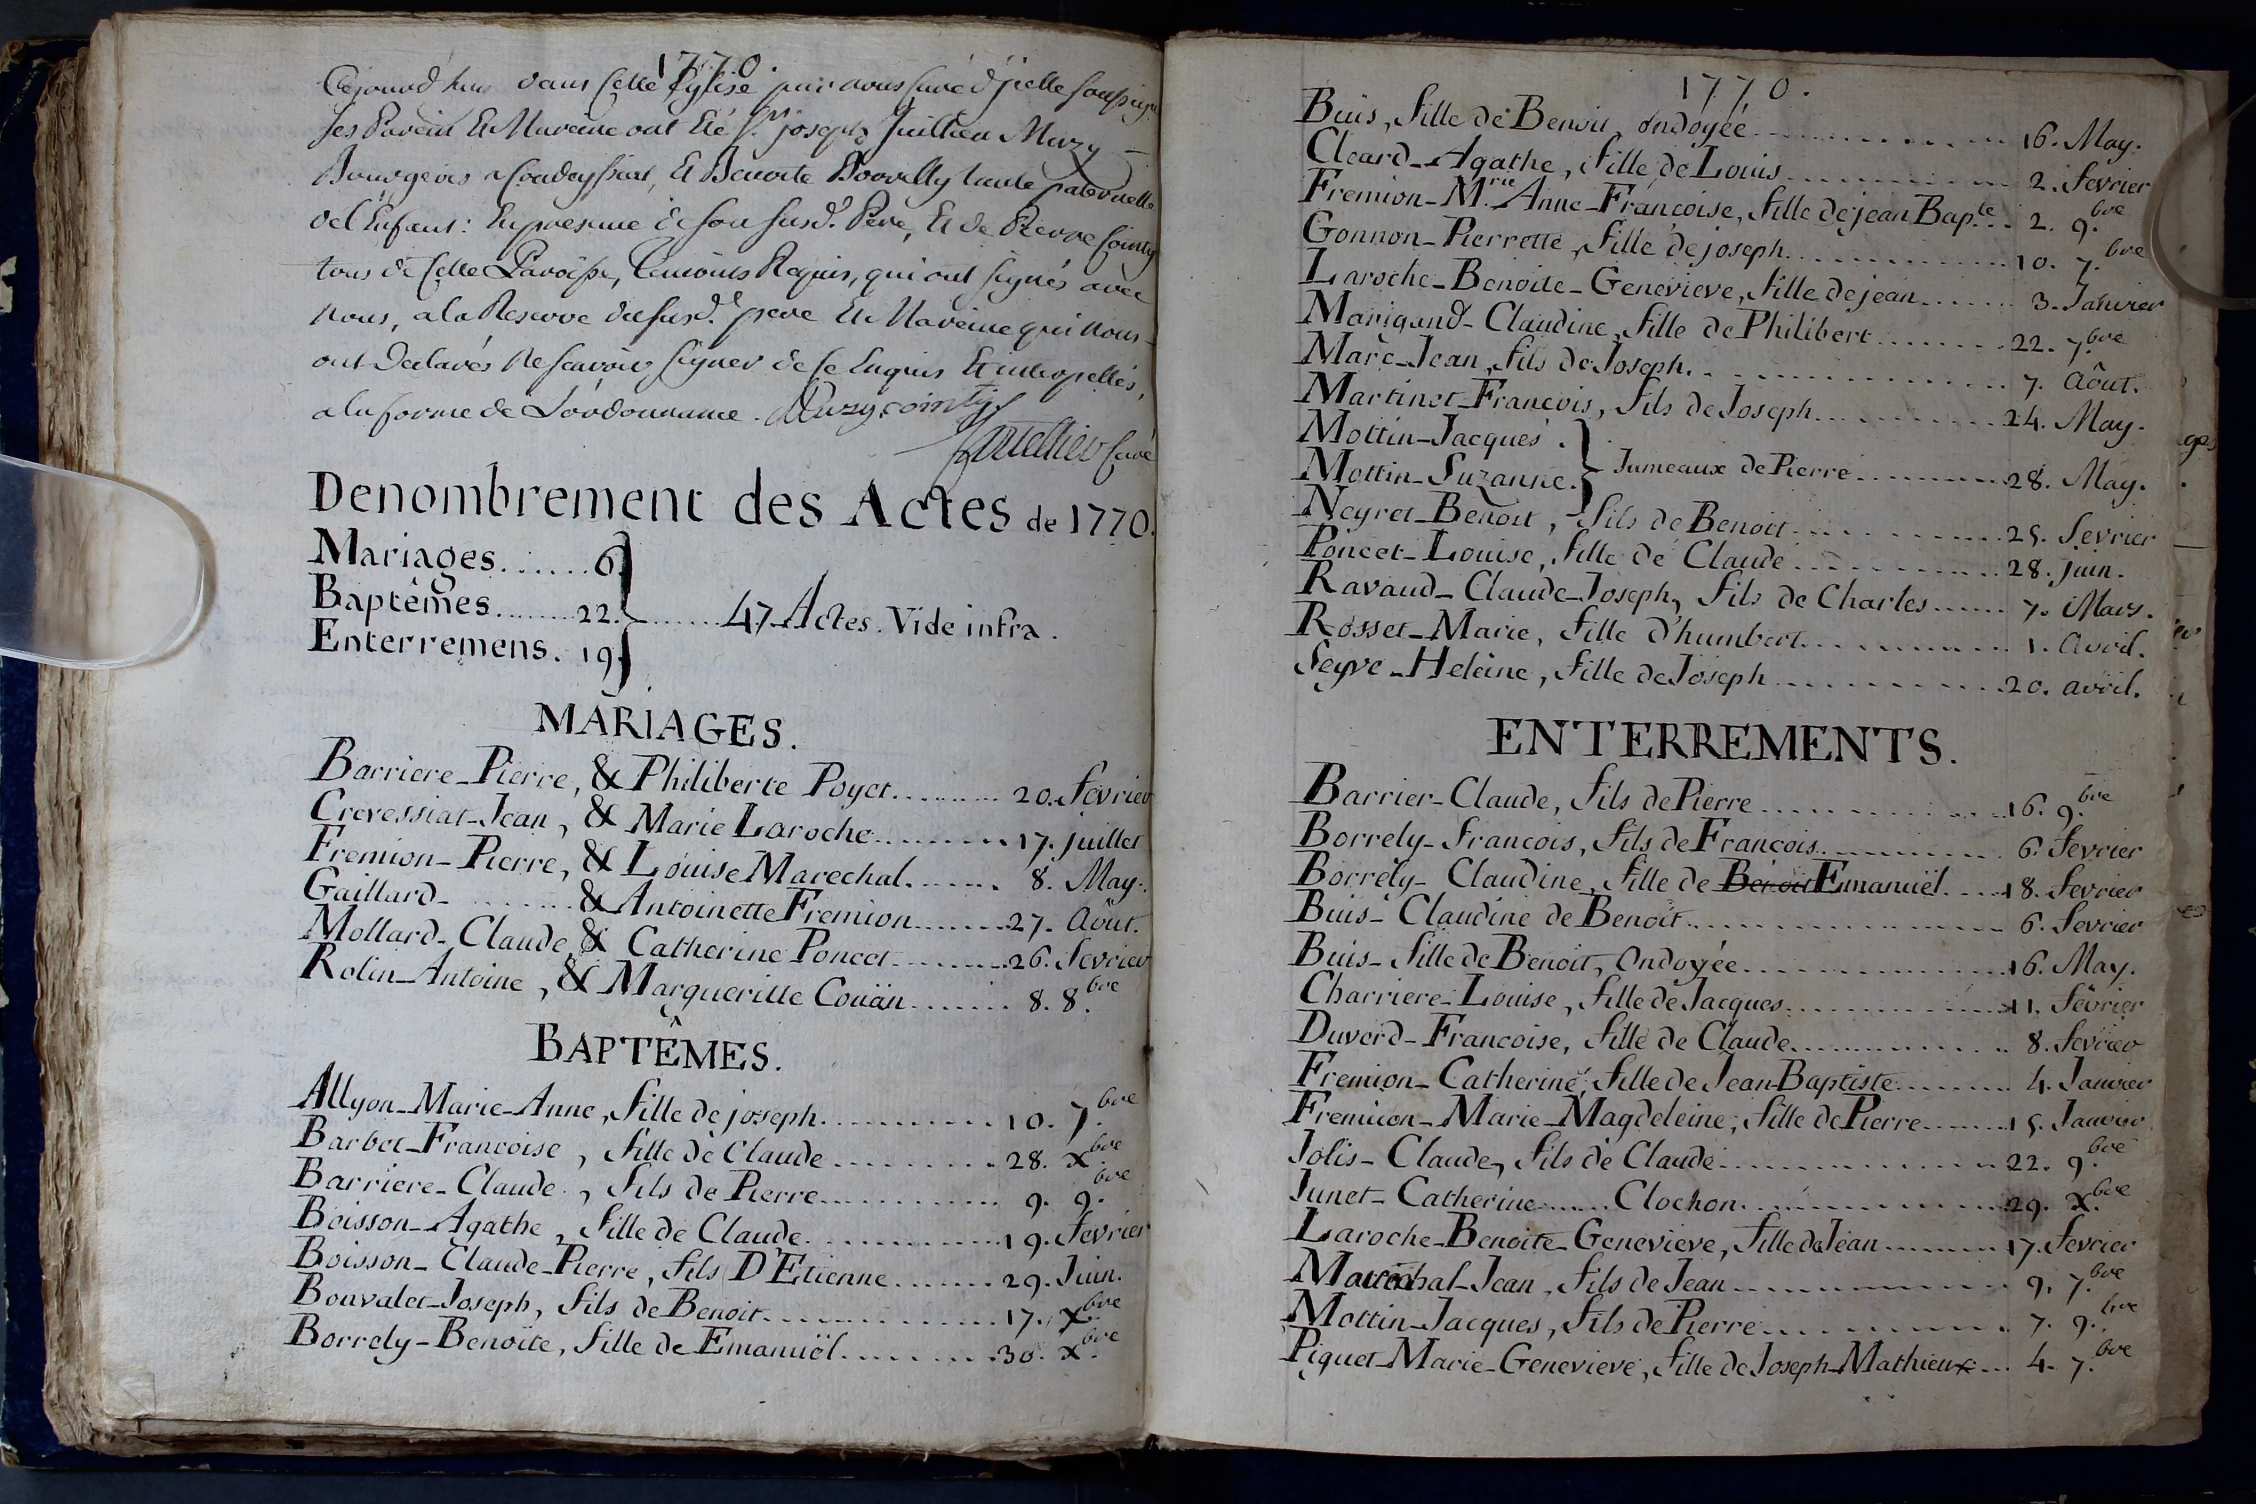 1770.
Cejourd'huy dans Cette Eglise par nous Curé d'jcelle soussigné
ses Parein Et Mareine ont Eté Sr. joseph Juillien Muzy
Bourgeois a Condeyssiat, Et Benoite Borrelly tante paternelle
de l'Enfant: En presence de son susd. Pere, Et de Pierre Cointy
tous de Cette Paroisse, Temoins Requis, qui ont signés avec
nous, a la Reserve du susd. pere Et Mareine qui nous
ont Declarés Ne scavoir signer de Ce Enquis Et interpellés,
a la forme de L'ordonnance. Muzy cointy
Curé
Denombrement des Actes de 1770.
Mariages...... 6.
Baptêmes....... 22. ....... 47. Actes. Vide infra.
Enterremens. 19.
MARIAGES.
Barriere-Pierre, & Philiberte Poyet.......... 20. Fevrier
Crevessiat-Jean, & Marie Laroche.......... 17. juillet
Fremion-Pierre, & Louise Marechal........ 8. May.
Gaillard- ....... & Antoinette Fremion........ 27. Aôut.
Mollard-Claude, & Catherine Poncet......... 26. Fevrier
Rolin-Antoine, & Marguerille Coüan....... 8. 8.bre
BAPTÊMES.
Allyon-Marie-Anne, fille de joseph............ 10. 7.bre
Barbet-Francoise, fille de Claude.......... 28. xbre
Barriere-Claude, fils de Pierre............. 9. 9.bre
Boisson-Agathe, fille de Claude.............. 19. Fevrier
Boisson-Claude-Pierre, fils D'Etienne....... 29. Juin.
Bouvalet-Joseph, fils de Benoit............... 17. xbre
Borrely-Benoite, fille de Emanuël.......... 30. x.bre
1770.
Buis, fille de Benoit, ondoyée.............. 16. May.
Cleard-Agathe, fille de Louis............... 2. Fevrier
Fremion-M.rie Anne-Françoise, fille de jean Bap.te.. 2. 9.bre
Gonnon-Pierrette, fille de joseph............. 10. 7.bre
Laroche-Benoite-Genevieve, fille de jean....... 3. Janvier
Marigand-Claudine, fille de Philibert........ 22. 7.bre
Marc-Jean, fils de Joseph................. 7. Aôut.
Martinet-François, fils de Joseph........... 24. May.
Mottin-Jacques.
Mottin-Suzanne. Jumeaux de Pierre........... 28. May.
Neyret-Benoit, fils de Benoit............. 25. Fevrier
Poncet-Louise, fille de Claude............. 28. juin.
Ravaud-Claude-Joseph, fils de Charles...... 7. Mars.
Rosset-Marie, fille d'humbert............. 1. avril.
Seyve-Heleine, fille de Joseph.............. 20. avril.
ENTERREMENTS.
Barrier-Claude, fils de Pierre.............. 16. 9.bre
Borrely-francois, fils de Francois........... 6. Fevrier
Borrely-Claudine, fille de Benoit Emanuël..... 18. Fevrier
Buis-Claudine de Benoit................. 6. Fevrier
Buis-fille de Benoit, Ondoyée................ 16. May.
Charriere-Louise, fille de Jacques............. 11. Fevrier
Duverd-Francoise, fille de Claude............. 8. Fevrier
Fremion-Catherine, fille de Jean-Baptiste........ 4. Janvier
Fremion-Marie-Magdeleine, fille de Pierre....... 15. Janvier
Jolis-Claude, fils de Claude................ 22. 9.bre
Junet-Catherine....... Clochon............... 29. X.bre
Laroche-Benoite-Genevieve, fille de Jean........ 17. Fevrier
Marechal-Jean, fils de Jean............... 9. 7.bre
Mottin-Jacques, fils de Pierre............. 7. 9.bre
Piquet-Marie-Genevieve, fille de Joseph-Mathieu... 4. 7.bre